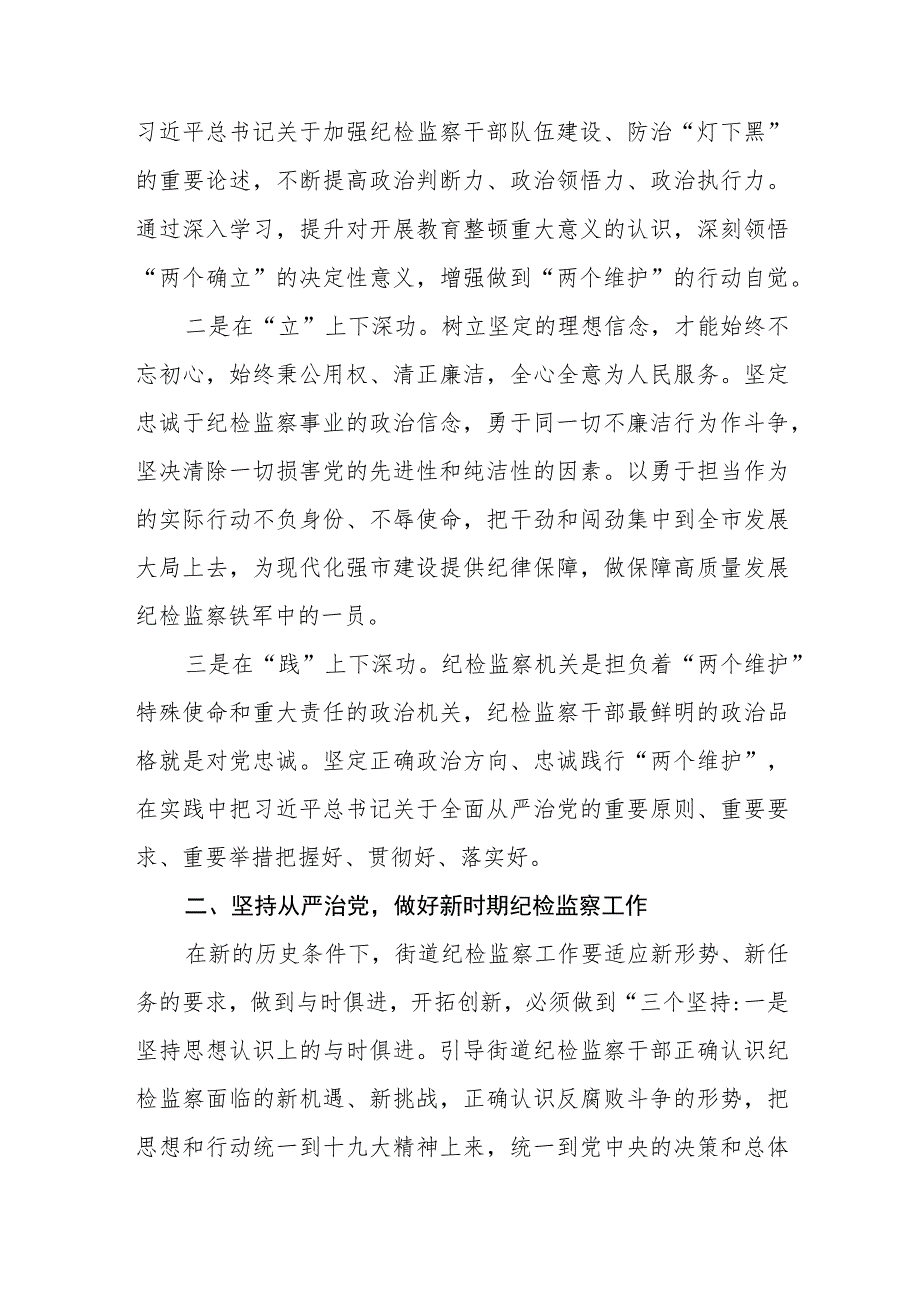 习近平总书记关于加强纪检监察干部队伍建设、防治“灯下黑”
的重要论述，不断提高政治判断力、政治领悟力、政治执行力。
通过深入学习，提升对开展教育整顿重大意义的认识，深刻领悟
“两个确立”的决定性意义，增强做到“两个维护”的行动自觉。
二是在“立”上下深功。树立坚定的理想信念，才能始终不
忘初心，始终秉公用权、清正廉洁，全心全意为人民服务。坚定
忠诚于纪检监察事业的政治信念，勇于同一切不廉洁行为作斗争，
坚决清除一切损害党的先进性和纯洁性的因素。以勇于担当作为
的实际行动不负身份、不辱使命，把干劲和闯劲集中到全市发展
大局上去，为现代化强市建设提供纪律保障，做保障高质量发展
纪检监察铁军中的一员。
三是在“践”上下深功。纪检监察机关是担负着“两个维护”
特殊使命和重大责任的政治机关，纪检监察干部最鲜明的政治品
格就是对党忠诚。坚定正确政治方向、忠诚践行“两个维护”，
在实践中把习近平总书记关于全面从严治党的重要原则、重要要
求、重要举措把握好、贯彻好、落实好。
二、坚持从严治党，做好新时期纪检监察工作
在新的历史条件下，街道纪检监察工作要适应新形势、新任
务的要求，做到与时俱进，开拓创新，必须做到“三个坚持:一是
坚持思想认识上的与时俱进。引导街道纪检监察干部正确认识纪
检监察面临的新机遇、新挑战，正确认识反腐败斗争的形势，把
思想和行动统一到十九大精神上来，统一到党中央的决策和总体